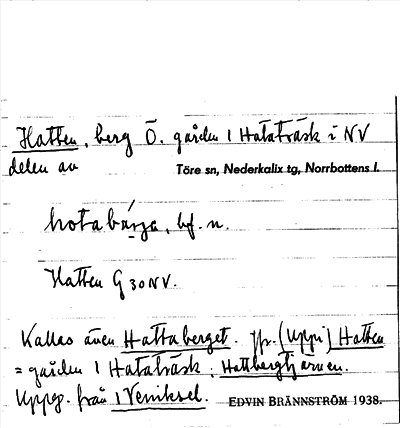 Hatten, berg Ö. gården 1 Hataträsk i NV
delen av Töre sn, Nederkalix tg, Norrbottens l.
hotabärga, bf. n.
Hatten G 30 NV.
Kallas även Hattaberget. Jfr. (Uppi) Hatten
= gården 1 Hataträsk; Hattbergtjärnen.
Uppg. från 1 Veniksel. EDVIN BRÄNNSTRÖM 1938.